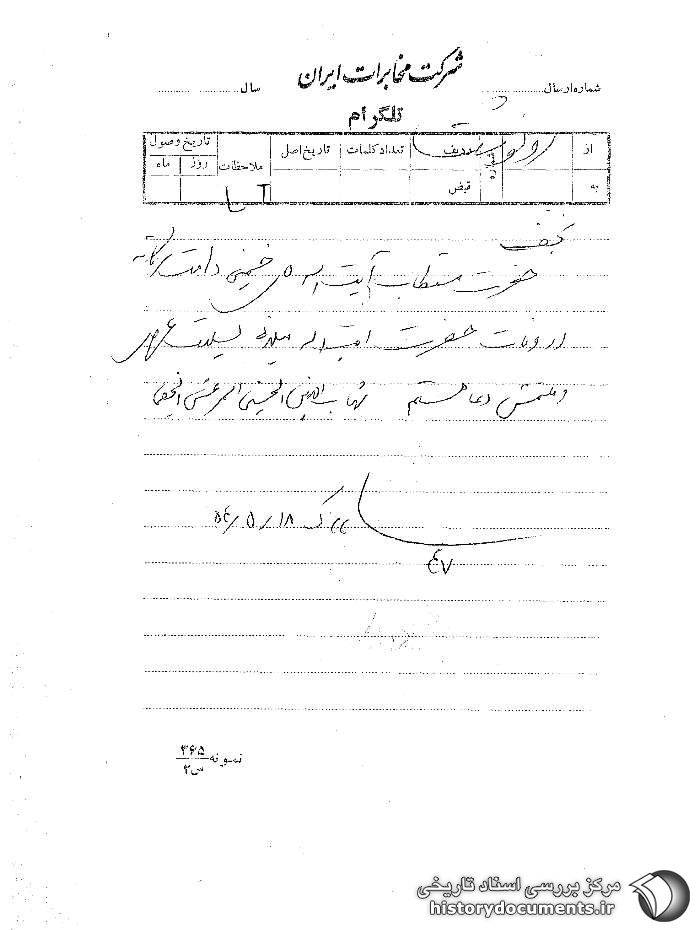 شرکت مخابرات ایران
شماره ارسال سال
تلگرام
از ردیف تعداد کلمات تاریخ اصل ملاحظات تاریخ وصول
روز ماه
به شماره قبض
رونوشت
نجف
حضرت مستطاب آیت اله خمینی دامت برکاته
در وفات حضرت آیت اله میلانی تسلیت عرض
و ملتمس دعا هستم شهاب الدین الحسینی المرعشی النجفی
۵۴/۵/۱۸
۴۷
نمونه ۳۶۵
س۲
مرکز بررسی اسناد تاریخی
historydocuments.ir